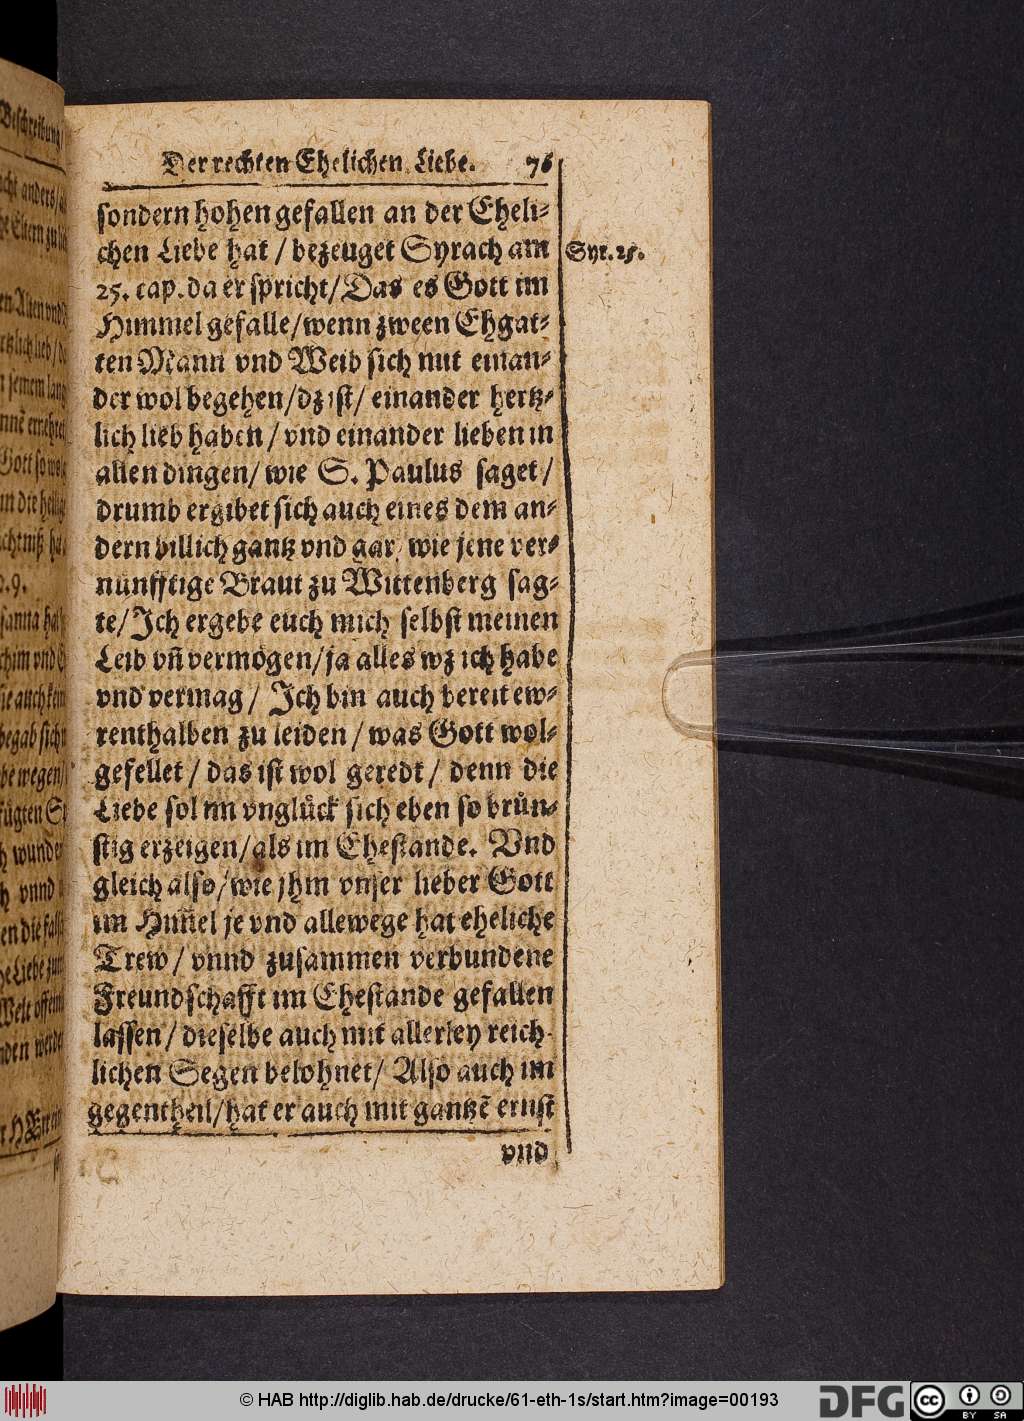 Der rechten Ehelichen Liebe. 76
sondern hohen gefallen an der Eheli-
chen Liebe hat / bezeuget Syrach am
Syr. 25.
25. cap. da er spricht / Das es Gott im
Himmel gefalle / wenn zween Ehgat-
ten Mann vnd Weib sich mit einan-
der wol begehen / dz ist / einander hertz-
lich lieb haben / vnd einander lieben in
allen dingen / wie S. Paulus saget /
drumb ergibet sich auch eines dem an-
dern billich gantz vnd gar / wie jene ver-
nunfftige Braut zu Wittenberg sag-
te / Ich ergebe euch mich selbst meinen
Leib vn̄ vermögen / ja alles wz ich habe
vnd vermag / Ich bin auch bereit ew-
renthalben zu leiden / was Gott wol-
gefellet / das ist wol geredt / denn die
Liebe sol im vnglück sich eben so brün-
stig erzeigen / als im Ehestande. Vnd
gleich also / wie jhm vnser lieber Gott
im Him̄el je vnd allewege hat eheliche
Trew / vnnd zusammen verbundene
Freundschafft im Ehestande gefallen
lassen / dieselbe auch mit allerley reich-
lichen Segen belohnet / Also auch im
gegentheil / hat er auch mit gantzē ernst
vnd
© HAB http://diglib.hab.de/drucke/61-eth-1s/start.htm?image=00193
DFG
cc BY SA